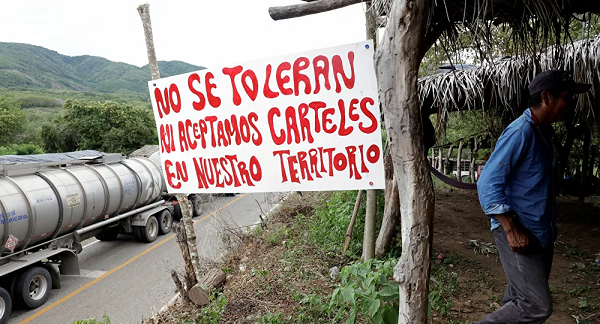 NO SE TOLERAN
NI ACEPTAMOS CARTELES
EN NUESTRO TERRITORIO